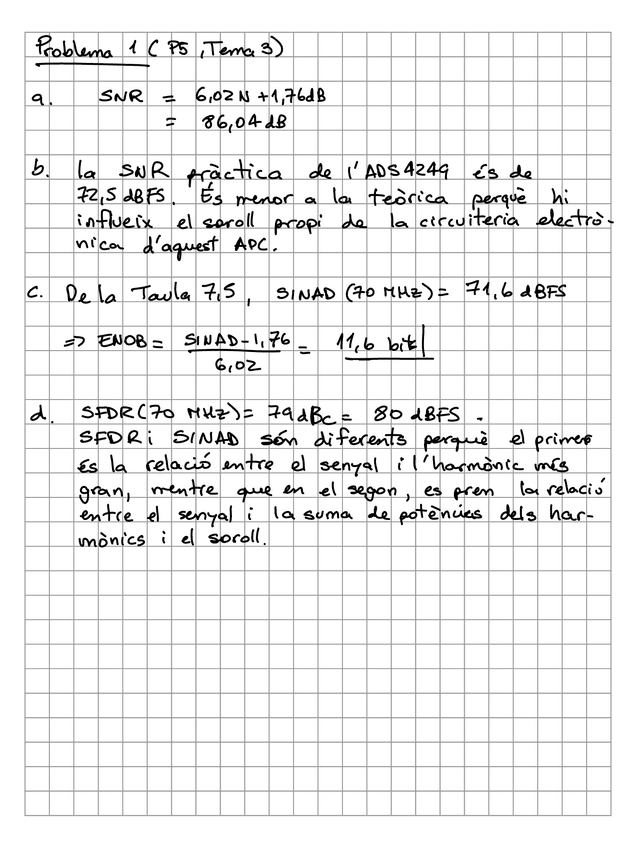 Problema 1 (P5, Tema 3)
a. SNR = 6,02 N + 1,76 dB
= 86,04 dB
b. La SNR pràctica de l'ADS4249 és de
72,5 dBFS. És menor a la teòrica perquè hi
influeix el soroll propi de la circuiteria electrò-
nica d'aquest ADC.
c. De la Taula 7,5, SINAD (70 MHz) = 71,6 dBFS
=> ENOB = SINAD - 1,76 / 6,02 = 11,6 bit
d. SFDR (70 MHz) = 79 dBc = 80 dBFS.
SFDR i SINAD són diferents perquè el primer
és la relació entre el senyal i l'harmònic més
gran, mentre que en el segon, es pren la relació
entre el senyal i la suma de potències dels har-
mònics i el soroll.